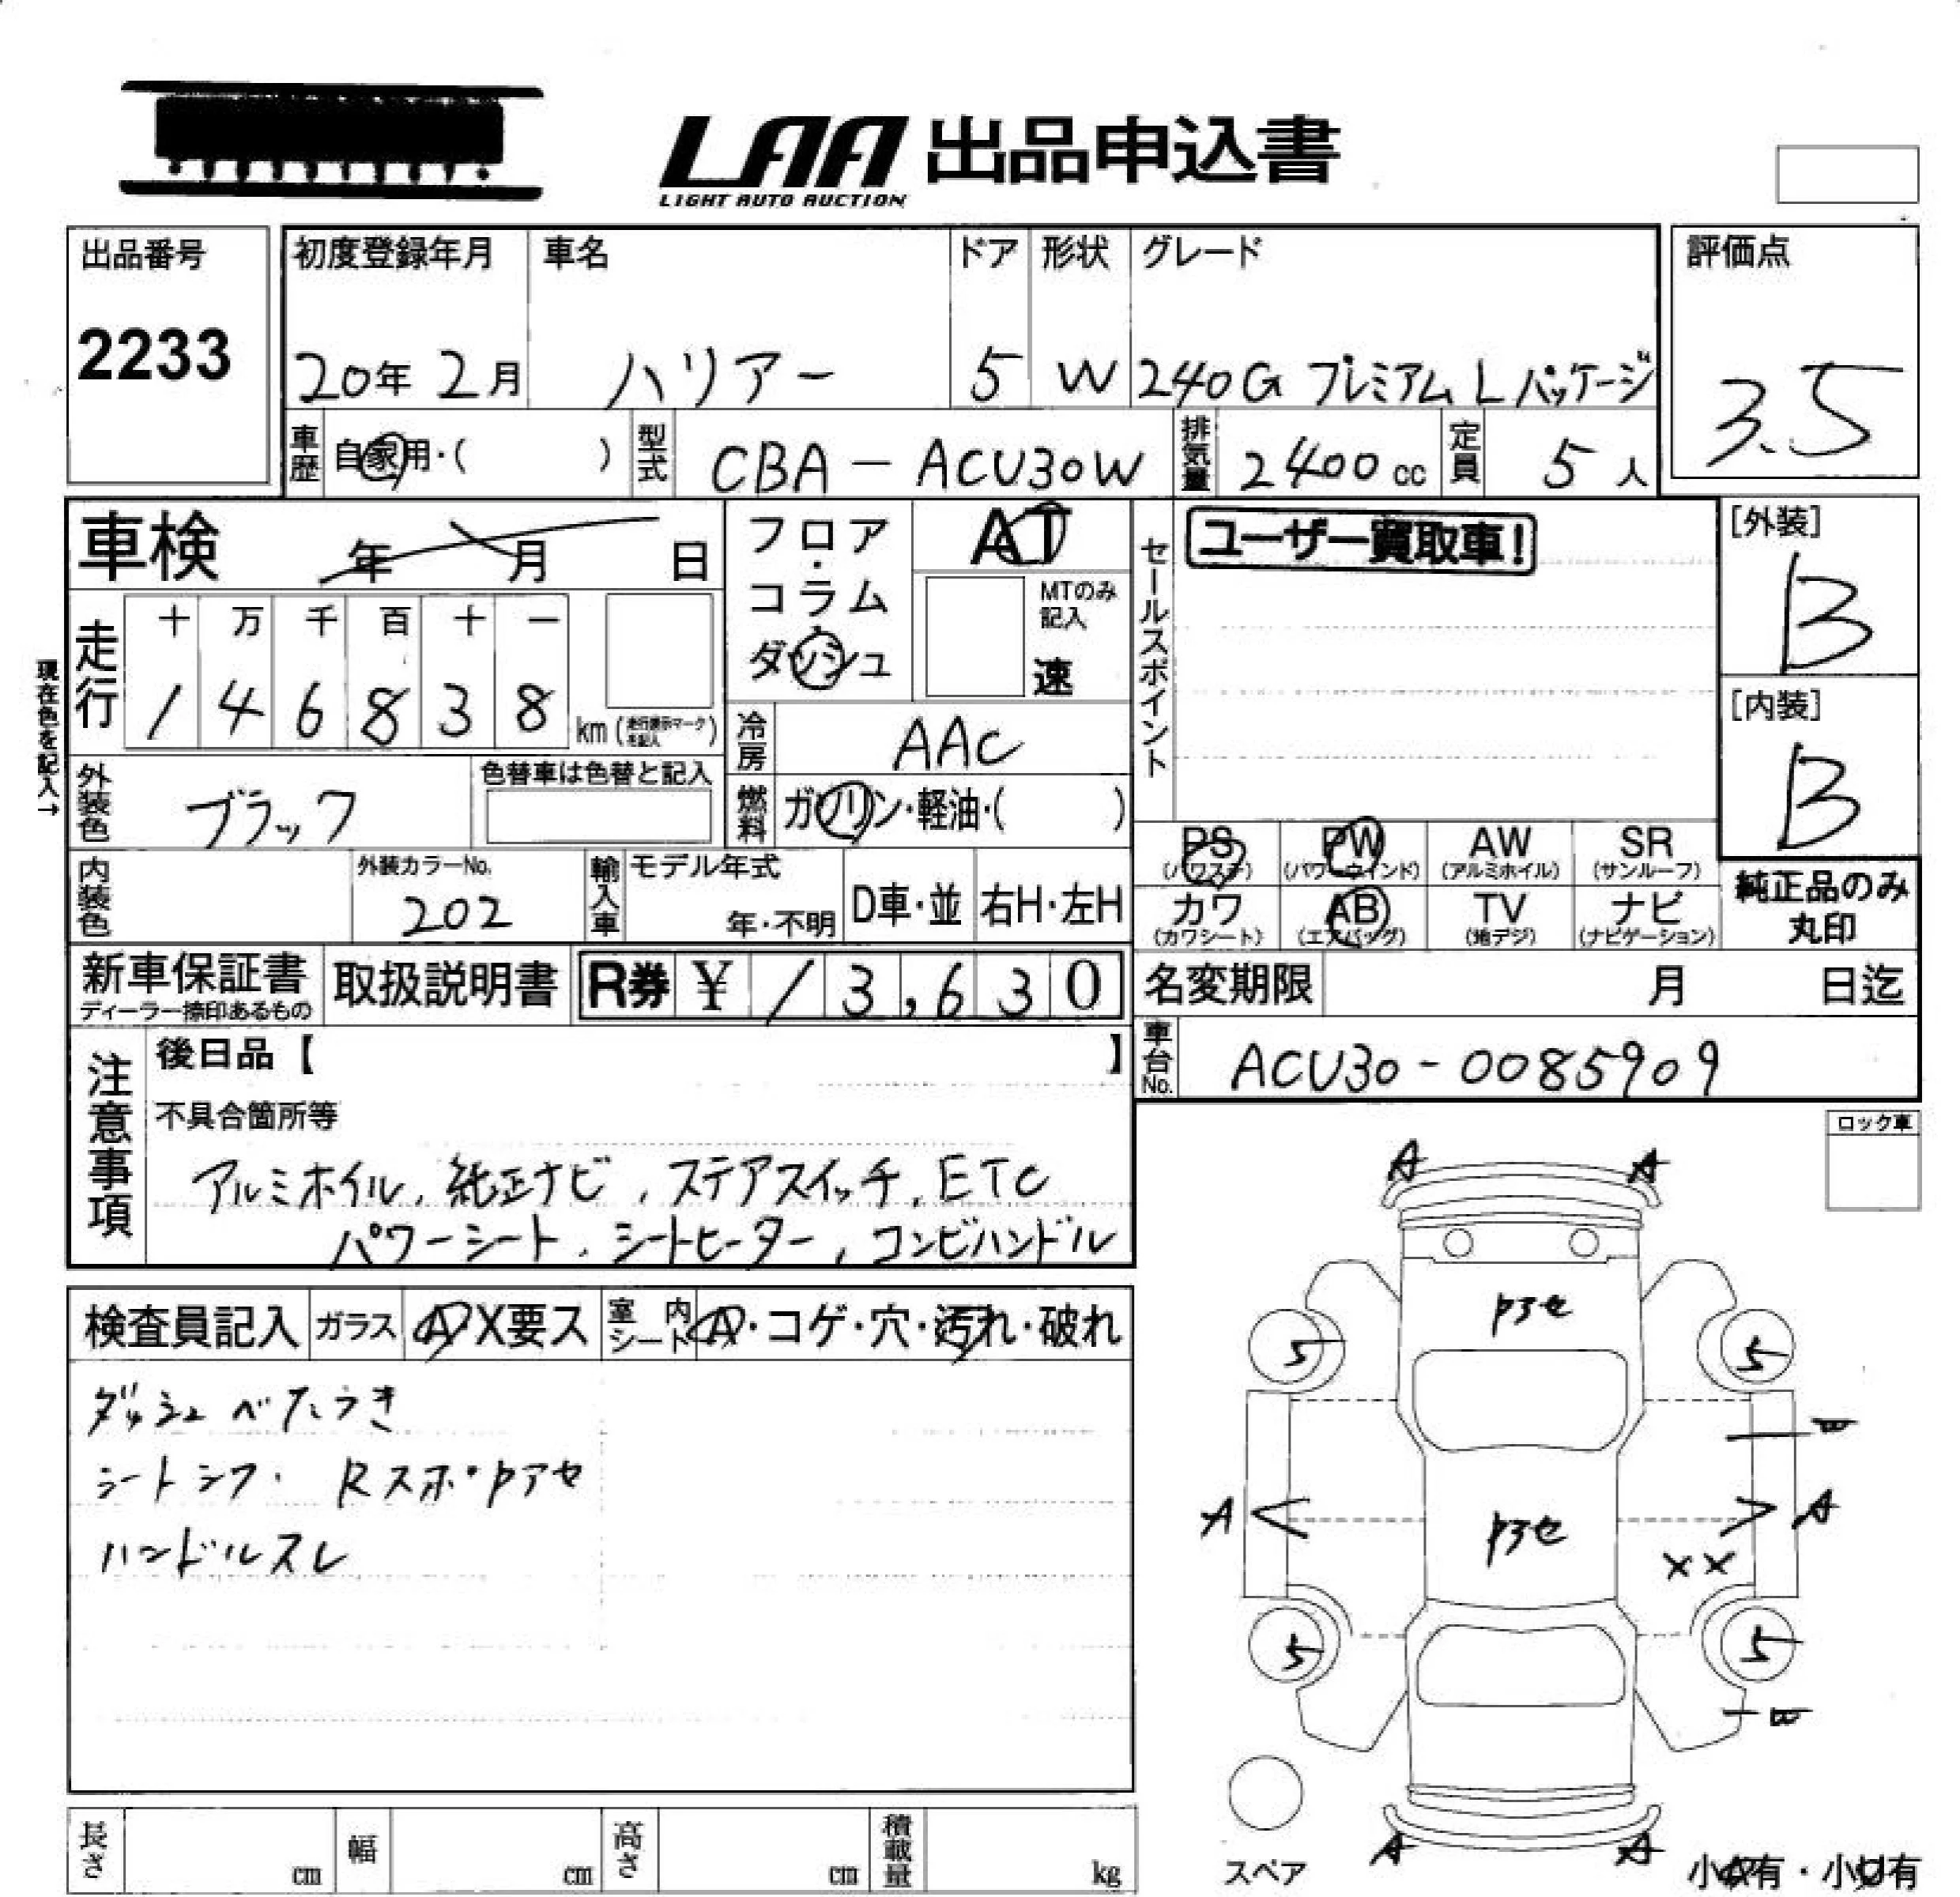 LAA 出品申込書
LIGHT AUTO AUCTION
出品番号
2233
初度登録年月
20年 2月
車名
ハリアー
ドア
5
形状
W
グレード
240G プレミアム L パッケージ
評価点
3.5
車歴
自家用・( )
型式
CBA - ACU30W
排気量
2400 cc
定員
5 人
車検 年 月 日
フロア・コラム・ダッシュ
AT
MTのみ記入
速
セールスポイント
ユーザー買取車!
[外装]
B
[内装]
B
現在色を記入→
走行
十 万 千 百 十 一
1 4 6 8 3 8 km (走行表示マークを記入)
冷房
AAC
燃料
ガソリン・軽油・( )
外装色
ブラック
色替車は色替と記入
内装色
外装カラーNo.
202
輸入車
モデル年式
年・不明
D車・並
右H・左H
PS (パワステ)
PW (パワーウインド)
AW (アルミホイル)
SR (サンルーフ)
カワ (カワシート)
AB (エアバッグ)
TV (地デジ)
ナビ (ナビゲーション)
純正品のみ丸印
新車保証書
ディーラー捺印あるもの
取扱説明書
R券 ¥ 13,630
名変期限 月 日迄
車台No.
ACU30-0085909
注意事項
後日品【 】
不具合箇所等
アルミホイル、純正ナビ、ステアスイッチ、ETC
パワーシート、シートヒーター、コンビハンドル
ロック車
検査員記入
ガラス
A X要ス
室内シート
A・コゲ・穴・汚れ・破れ
ダッシュ ベタ、うき
シートシワ・ Rスポ・クアセ
ハンドルスレ
A A
クアセ
5 5
A クアセ A
XX
5 5
A A
スペア
小A有・小U有
長さ cm
幅 cm
高さ cm
積載量 kg